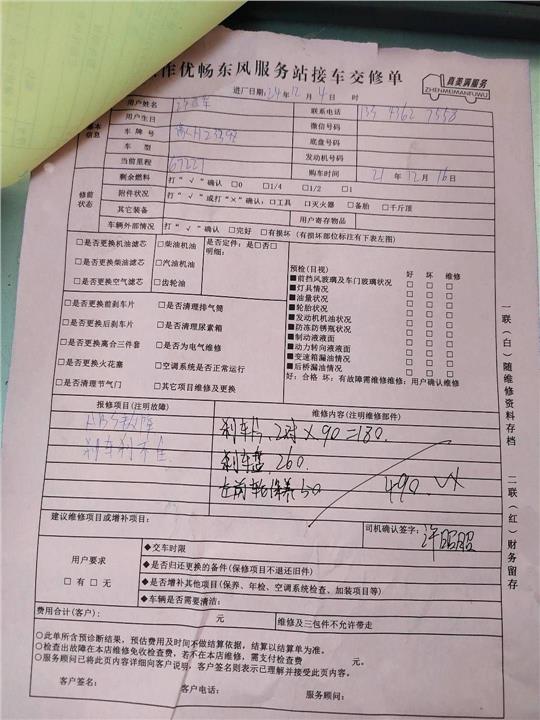 作优畅东风服务站接车交修单
真美满服务
ZHENMEIMANFUWU
进厂日期:24年12月4日 时
用户姓名 联系电话
用户生日 微信号码
车牌号 底盘号码
信息
车型 发动机号码
当前里程 67227 购车时间 21年12月16日
修前状态
剩余燃料 打“√”确认 □0 □1/4 □1/2 □1
附件状况 打“√”或打“×”确认:□工具 □灭火器 □备胎 □千斤顶
其它装备 用户寄存物品
车辆外部情况 打“√”确认 □完好 □有损坏(有损坏部位标注有下表左图)
□是否更换机油滤芯 □柴油机油 是否定件:是□否□
明细:
□是否更换柴油滤芯 □汽油机油
□是否更换空气滤芯 □齿轮油
□是否更换前刹车片 □是否清理排气筒
□是否更换后刹车片 □是否清理尿素箱
□是否更换离合三件套 □是否为电气维修
□是否更换火花塞 □空调系统是否正常运行
□是否清理节气门 □其它项目维修及更换
预检(目视) 好 坏 维修
■前挡风玻璃及车门玻璃状况 □ □ □
■灯具情况 □ □ □
■油量状况 □ □ □
■轮胎状况 □ □ □
■发动机机油状况 □ □ □
■防冻防锈瓶状况 □ □ □
■制动液液面 □ □ □
■动力转向液液面 □ □ □
■变速箱漏油情况 □ □ □
■后桥漏油情况 □ □ □
好:合格 坏:有故障需维修维修:用户确认维修
报修项目(注明故障) 维修内容(注明维修部件)
刹车片 2对×90=180.
刹车刹不住 刹车盘 260.
左前轮保养50 490.
建议维修项目或增补项目:
司机确认签字:
用户要求
□有 □无
◆交车时限
◆是否归还更换的备件(保修项目不退还旧件)
◆是否增补其他项目(保养、年检、空调系统检查、加装项目等)
◆车辆是否需要清洁:
费用合计(客户): 元 维修及三包件不允许带走
○此单所含预诊断结果,预估费用及时间不做结算依据,结算以结算单为准。
○检查出故障在本店维修免收检查费,若不在本店维修,需支付检查费 元。
○服务顾问已将此页内容详细向客户说明,客户签名则表示已理解并接受此页内容。
客户签名: 客户电话: 服务顾问:
一联(白)随维修资料存档
二联(红)财务留存